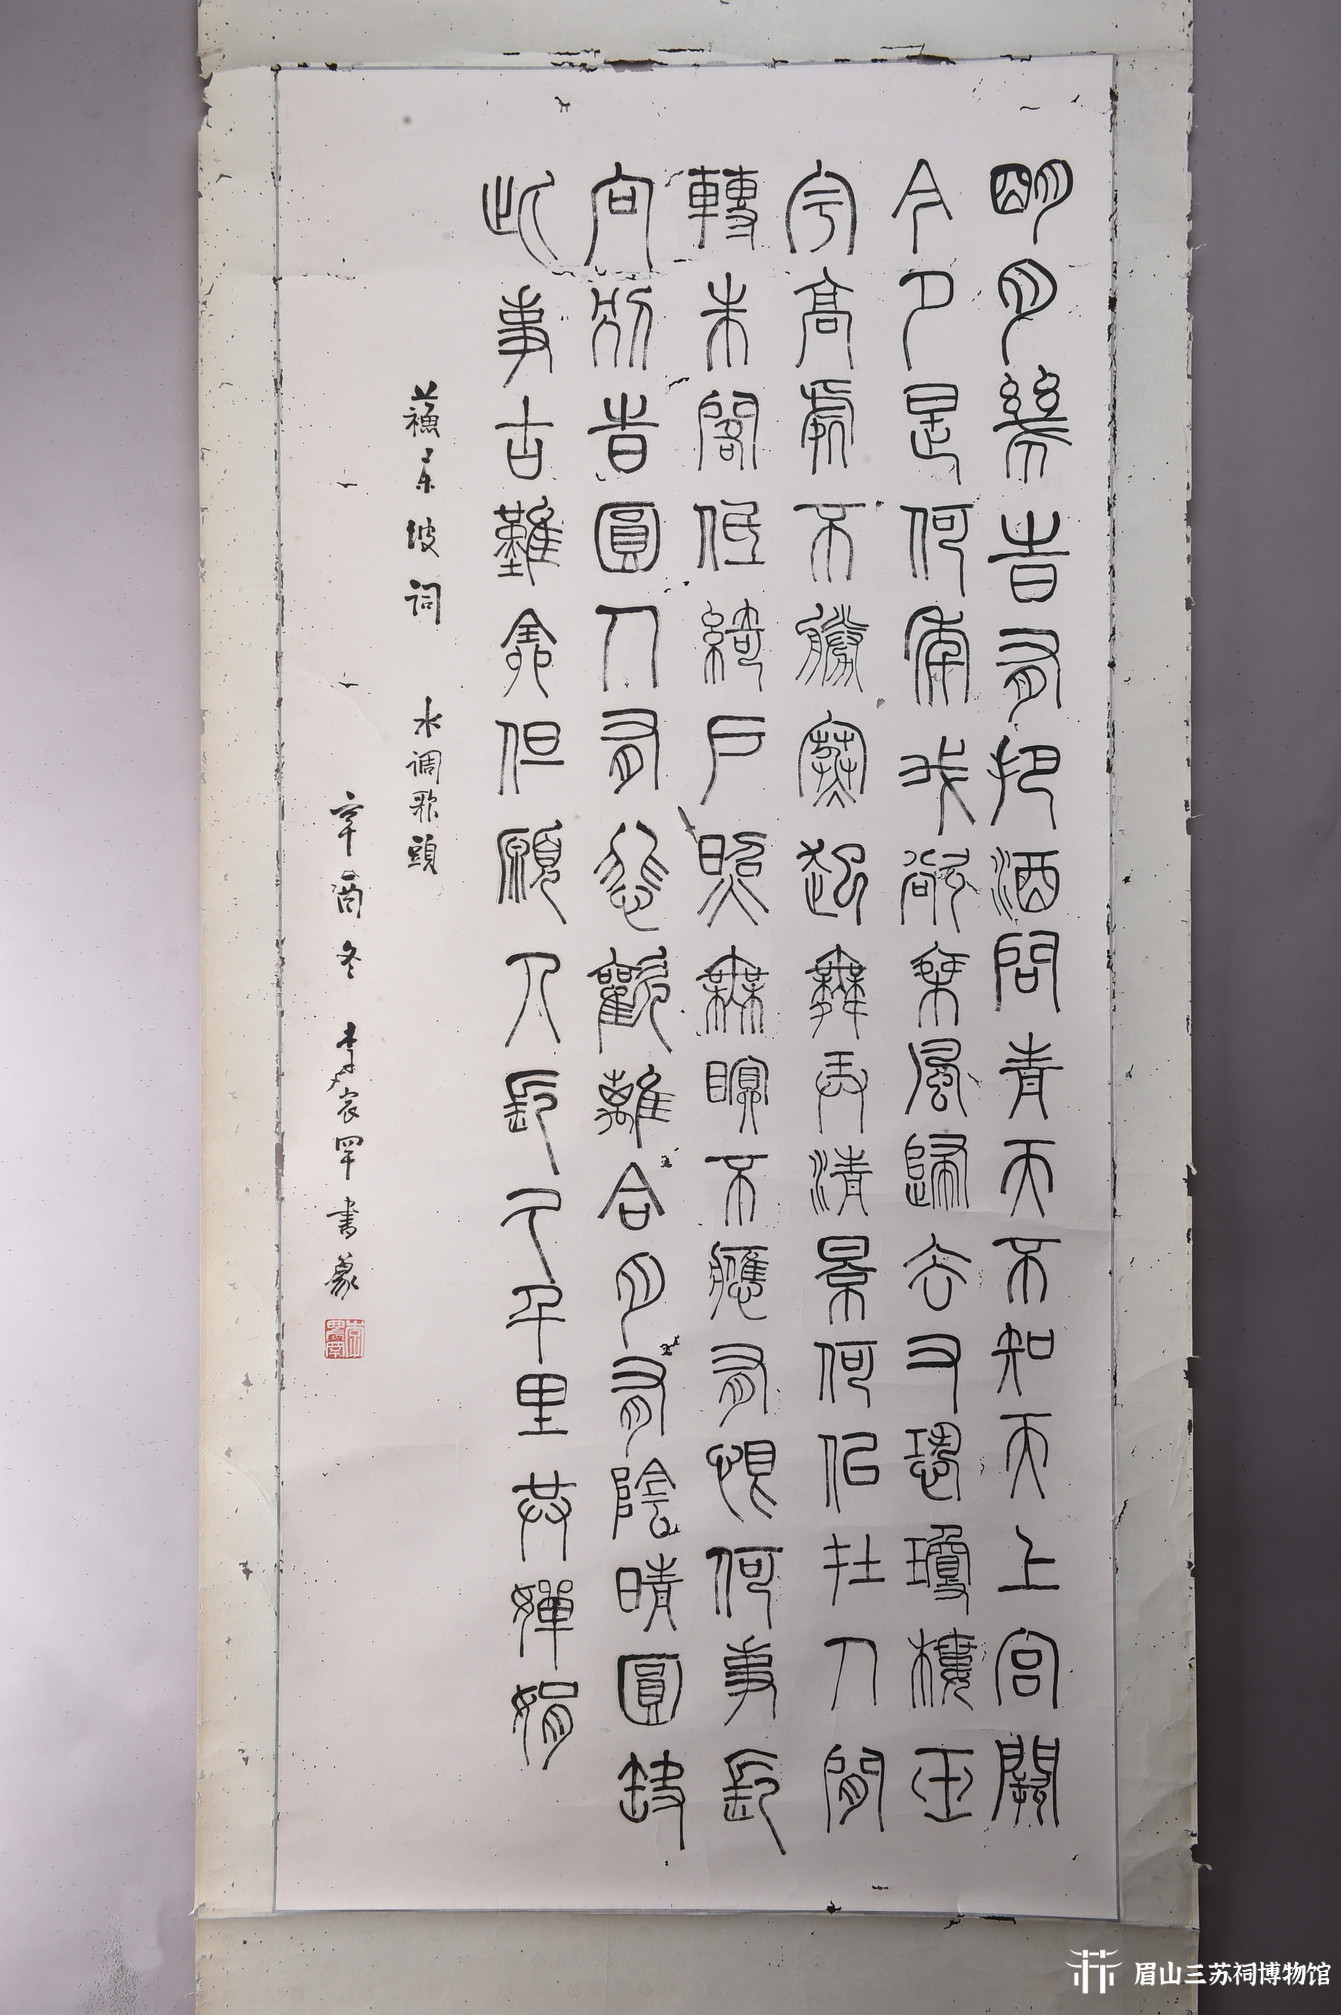 明月幾時有把酒問青天不知天上宮闕
今夕是何年我欲乘風歸去又恐瓊樓玉
宇高處不勝寒起舞弄清景何佀在人間
轉朱閣低綺戶照無瞑不應有恨何事長
向別時圓人有悲歡離合月有陰晴圓缺
此事古難全但願人長久千里共嬋娟
蘇東坡詞 水调歌頭
辛酉冬 李 书篆
眉山三苏祠博物馆